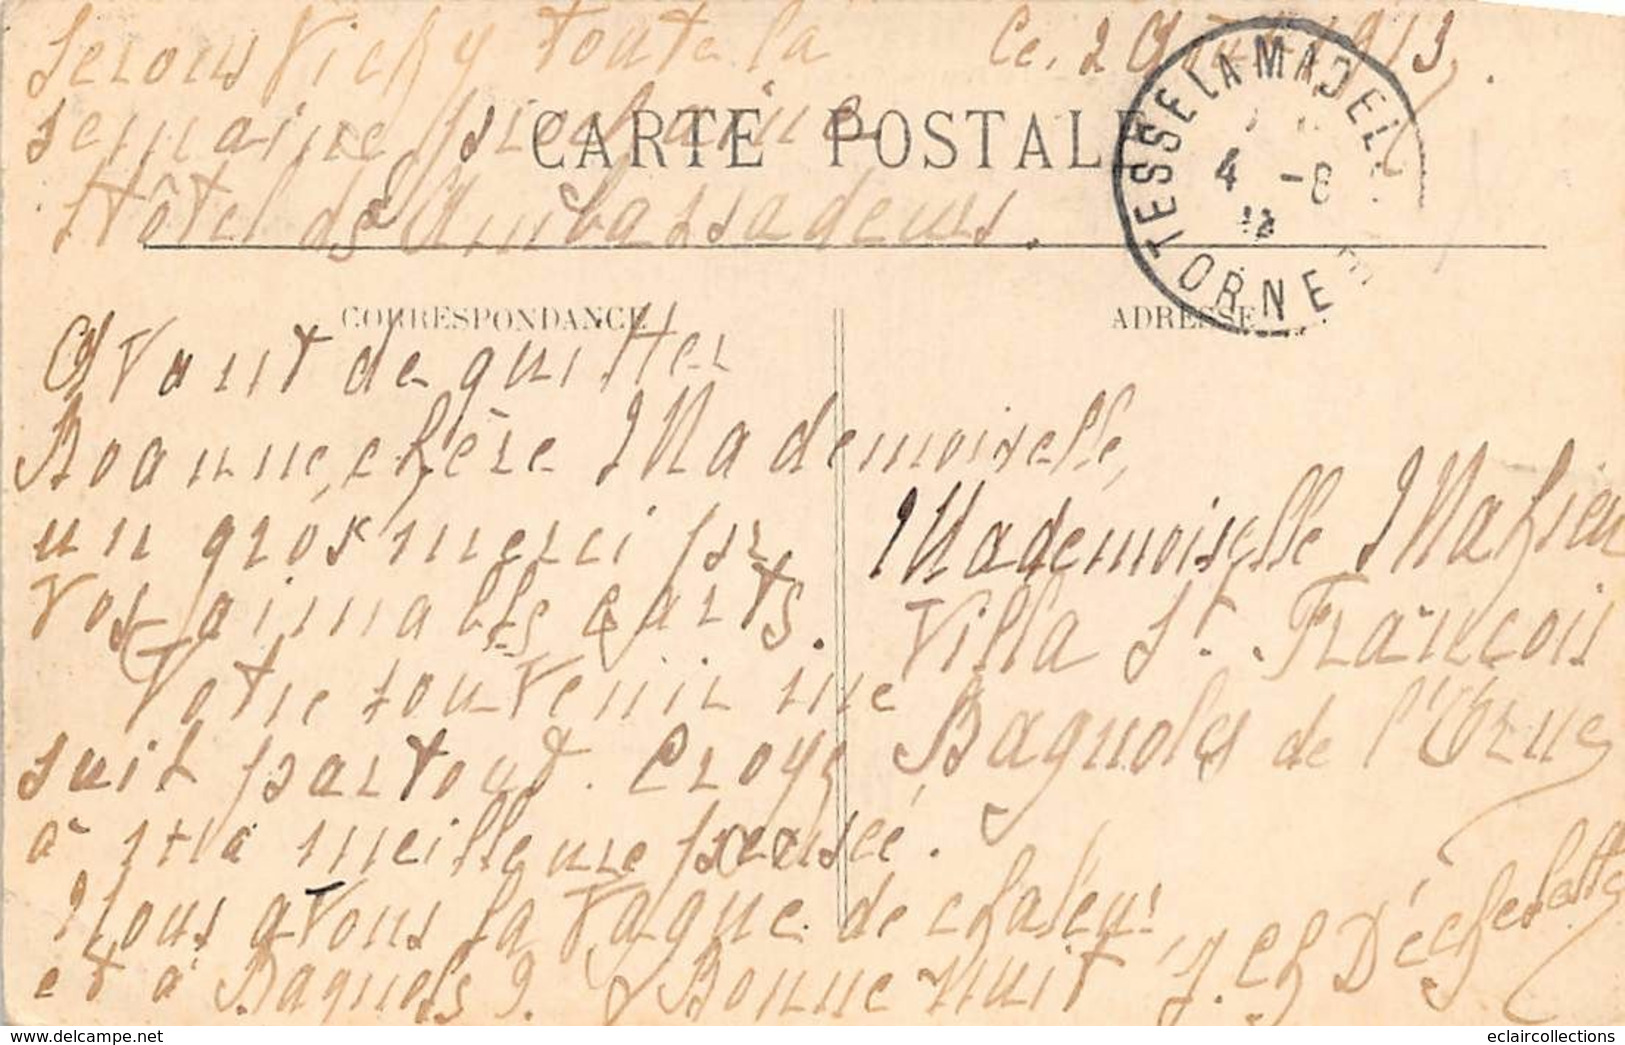 Serons Vichy toute la
semaine prochaine
Hôtel des Ambassadeurs.
Ce. 2 Août 1913,
CARTE POSTALE
TESSE LA MADELEINE
4 -8
13
ORNE
CORRESPONDANCE
ADRESSE
Avant de quitter
Roanne, chère Mademoiselle,
un gros merci pr
vos aimables cartes.
Votre souvenir me
suit partout. Croyez
à ma meilleure pensée.
Nous avons la vague de chaleur
et à Bagnols ? Bonne nuit J. Ch Déchelette
Mademoiselle Mahieu
Villa St. François
Bagnoles de l'Orne
www.delcampe.net
eclaircollections